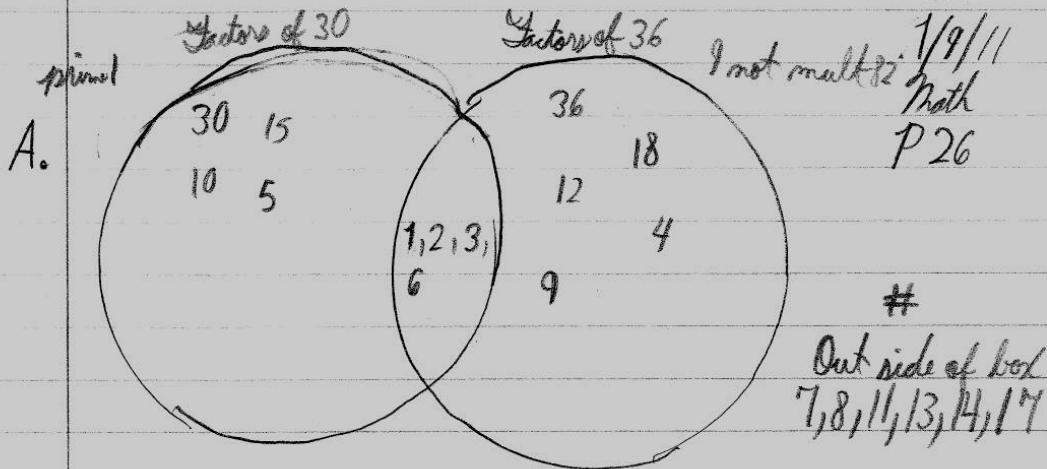 Factors of 30 Factors of 36 1/9/11
I not mult 82 Math
A. P 26
30 15
10 5
1, 2, 3,
6
36
18
12
4
9
#
Out side of box
7, 8, 11, 13, 14, 17